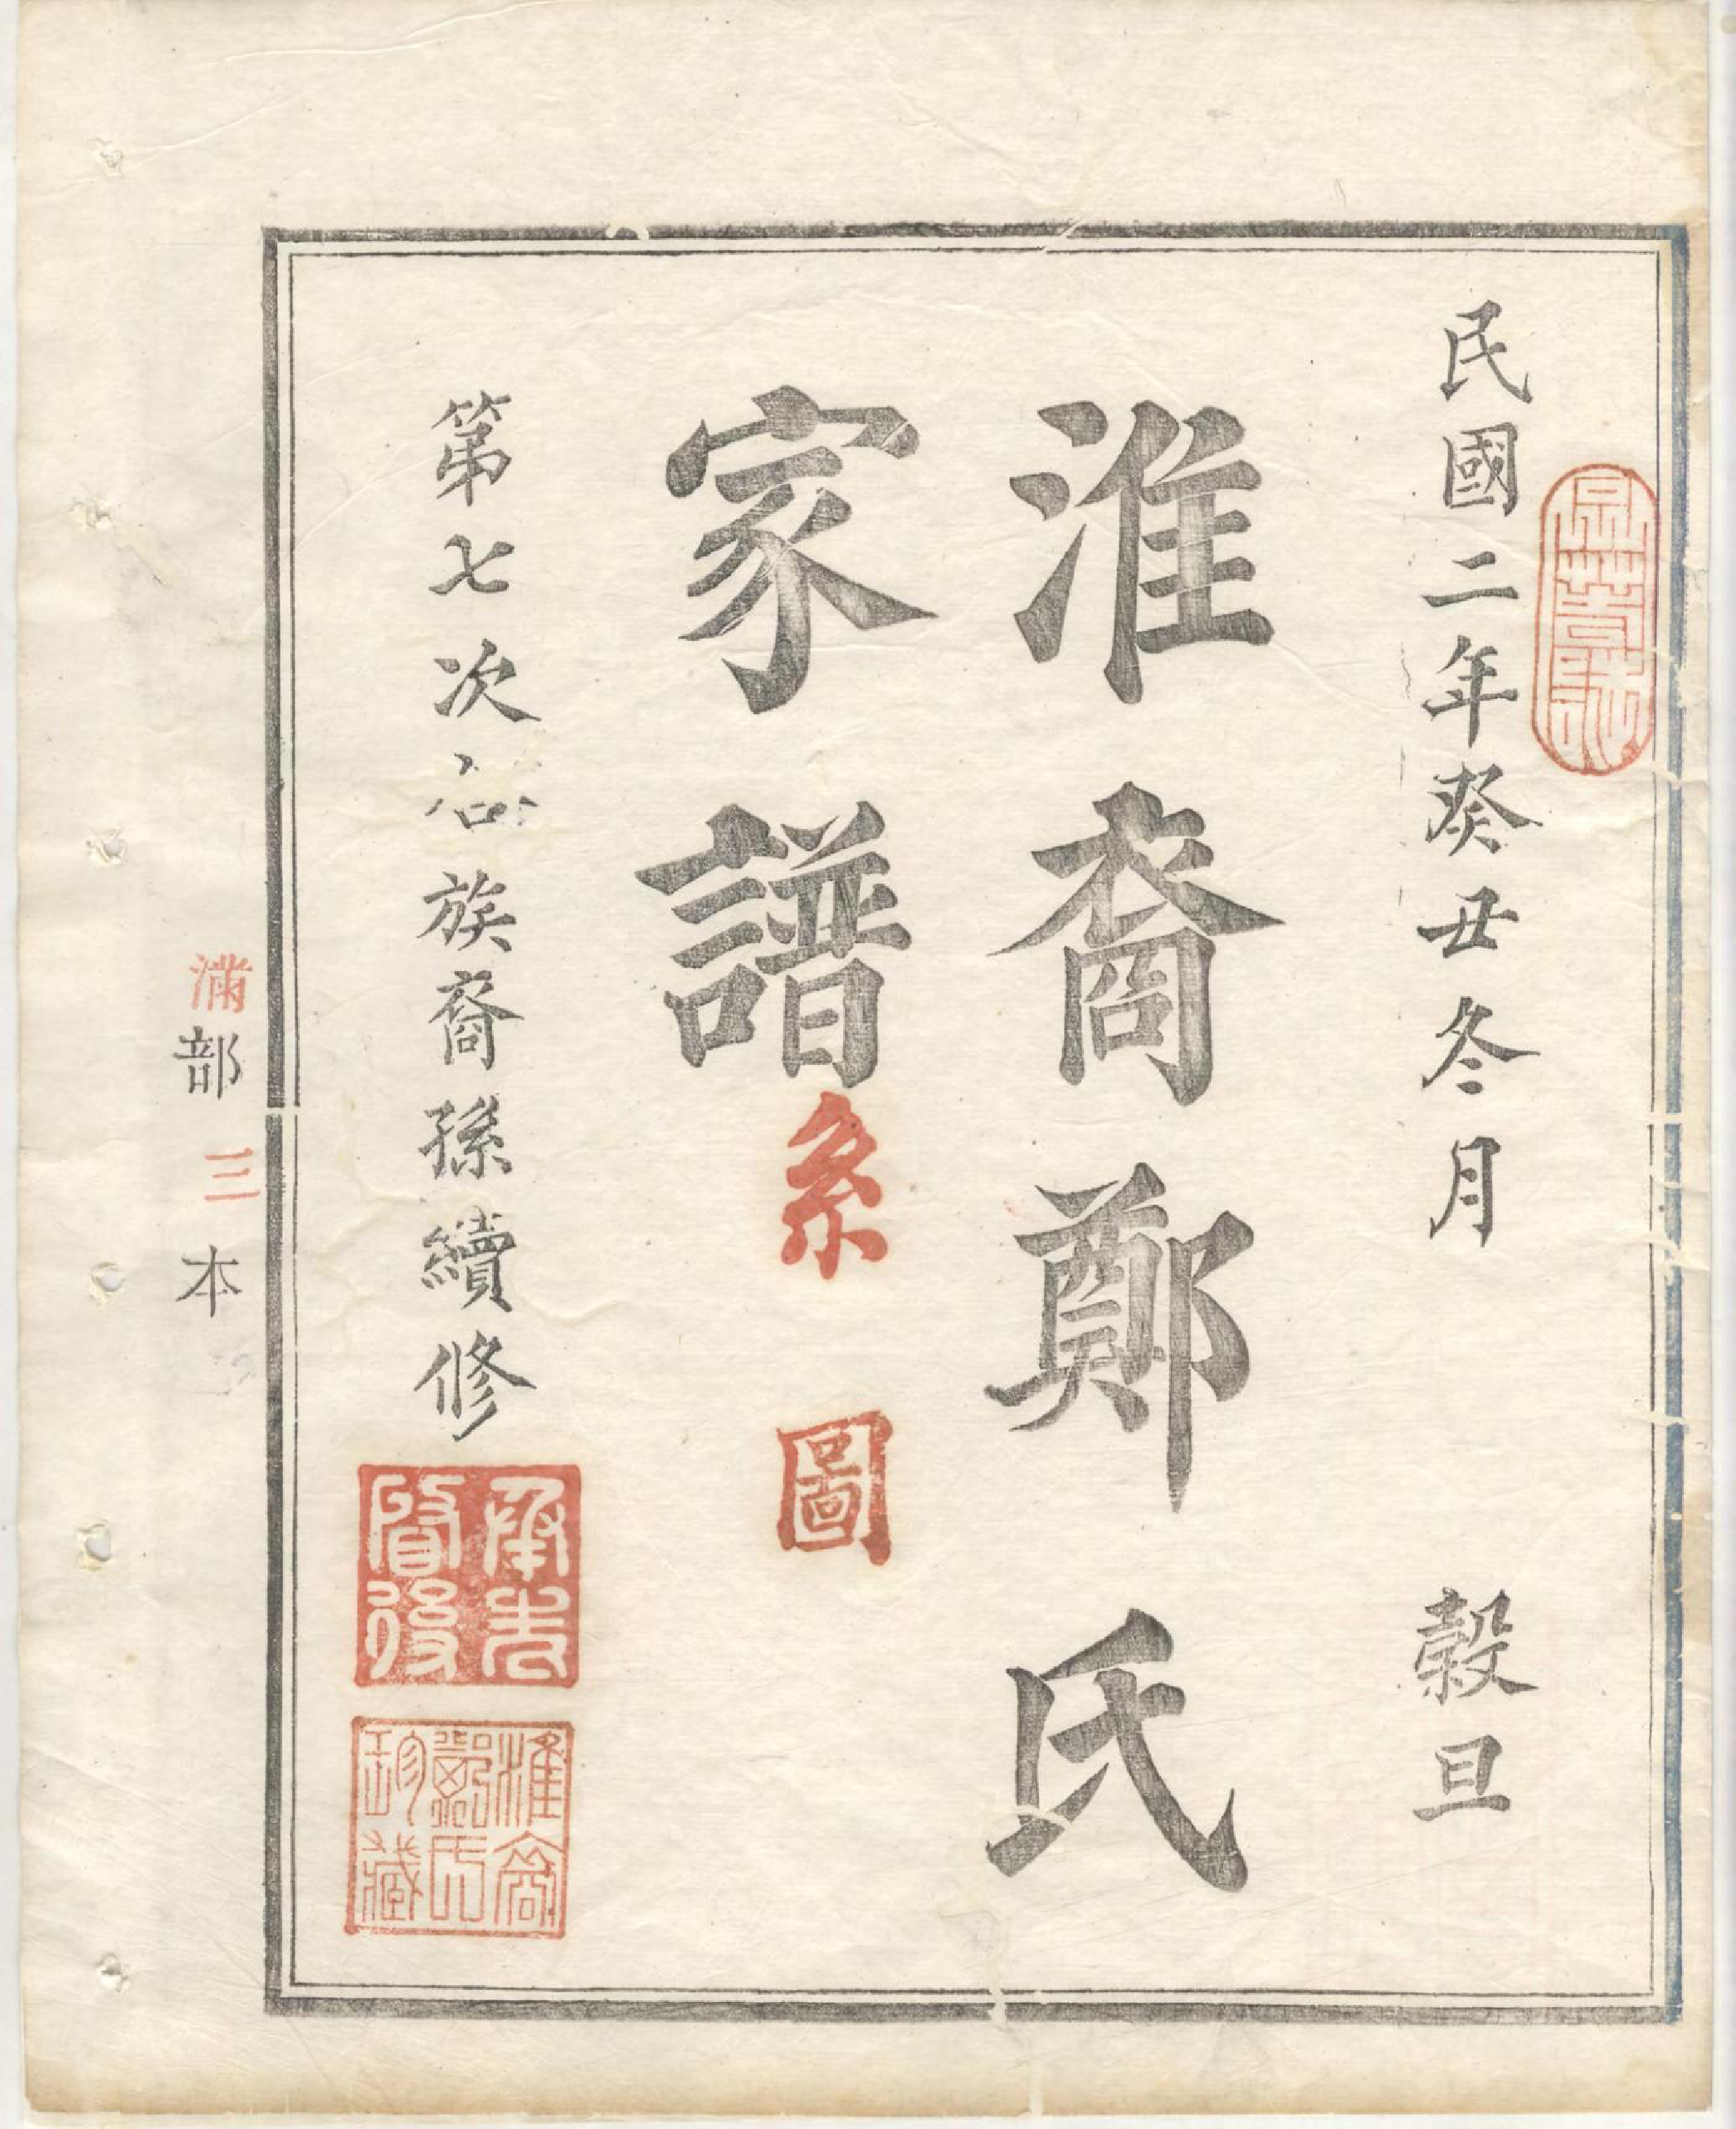 民國二年癸丑冬月 穀旦
淮裔鄭氏
家譜系圖
第七次合族裔孫續修
承先
啓後
淮裔
鄭氏
珍藏
滿部三本